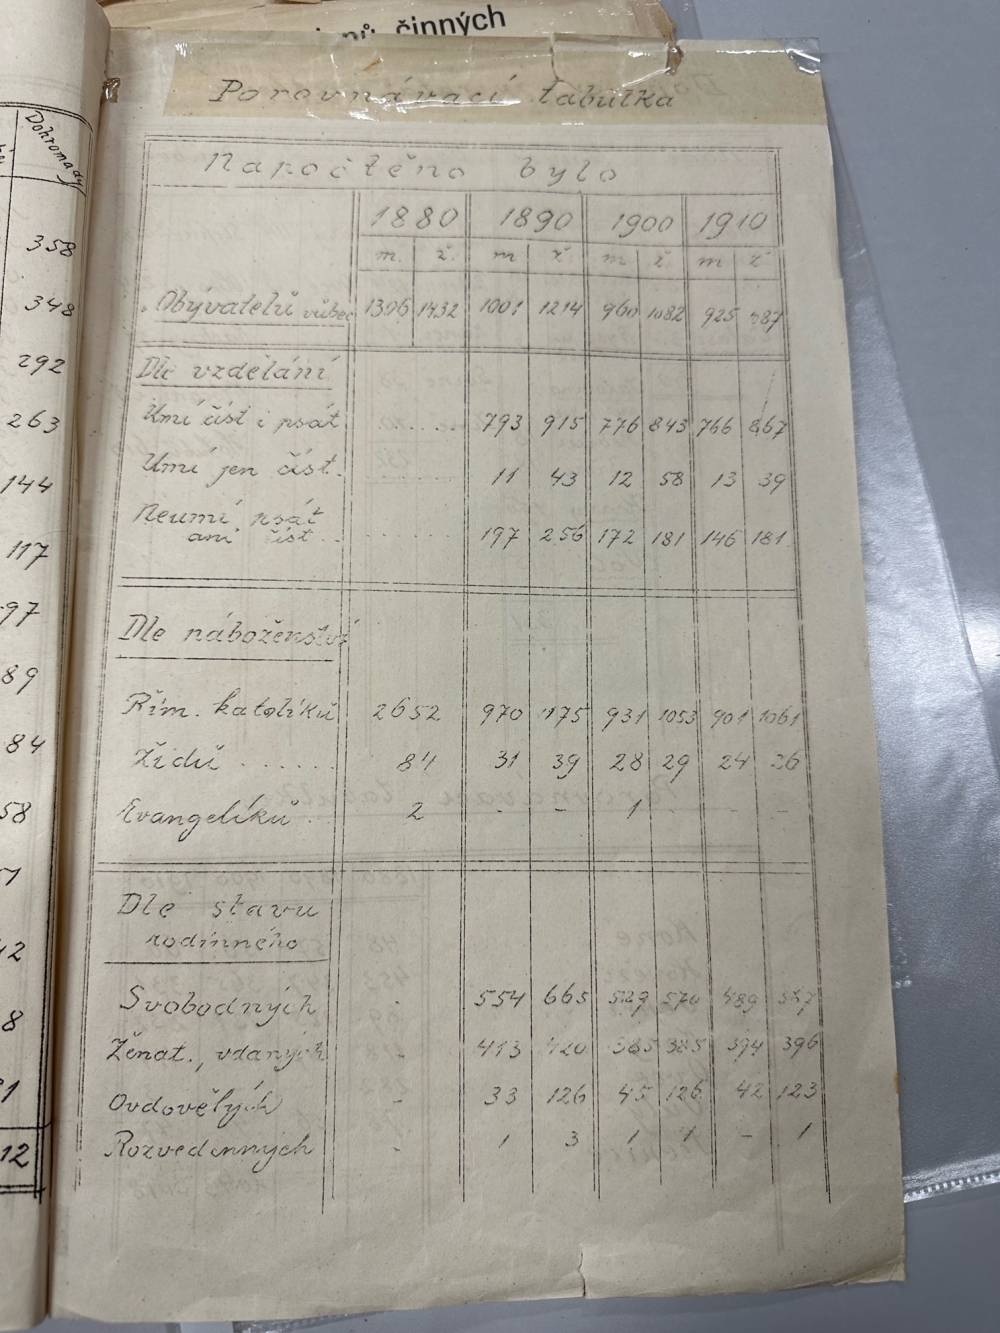 činných
Porovnávací tabulka
Dohromady
358
348
292
263
144
117
97
89
84
58
12
Napočtěno bylo
1880 1890 1900 1910
m. ž. m ž. m ž. m ž
Obyvatelů vůbec 1306 1432 1001 1214 960 1082 925
Dle vzdělání
Umí číst i psát ..... 793 915 776 843 766 867
Umí jen číst. ..... 11 43 12 58 13 39
Neumí psát
ani číst .. ..... 197 256 172 181 146 181
Dle náboženství
Řím. katolíků 2652 970 1175 931 1053 901 1061
Židů ...... 84 31 39 28 29 24 26
Evangelíků .. 2 - - 1 - -
Dle stavu
rodinného
Svobodných - 554 665 529 570 489
Ženat., vdaných - 413 420 385 385 394 396
Ovdovělých - 33 126 45 126 42 123
Rozvedenných - 1 3 1 1 - 1